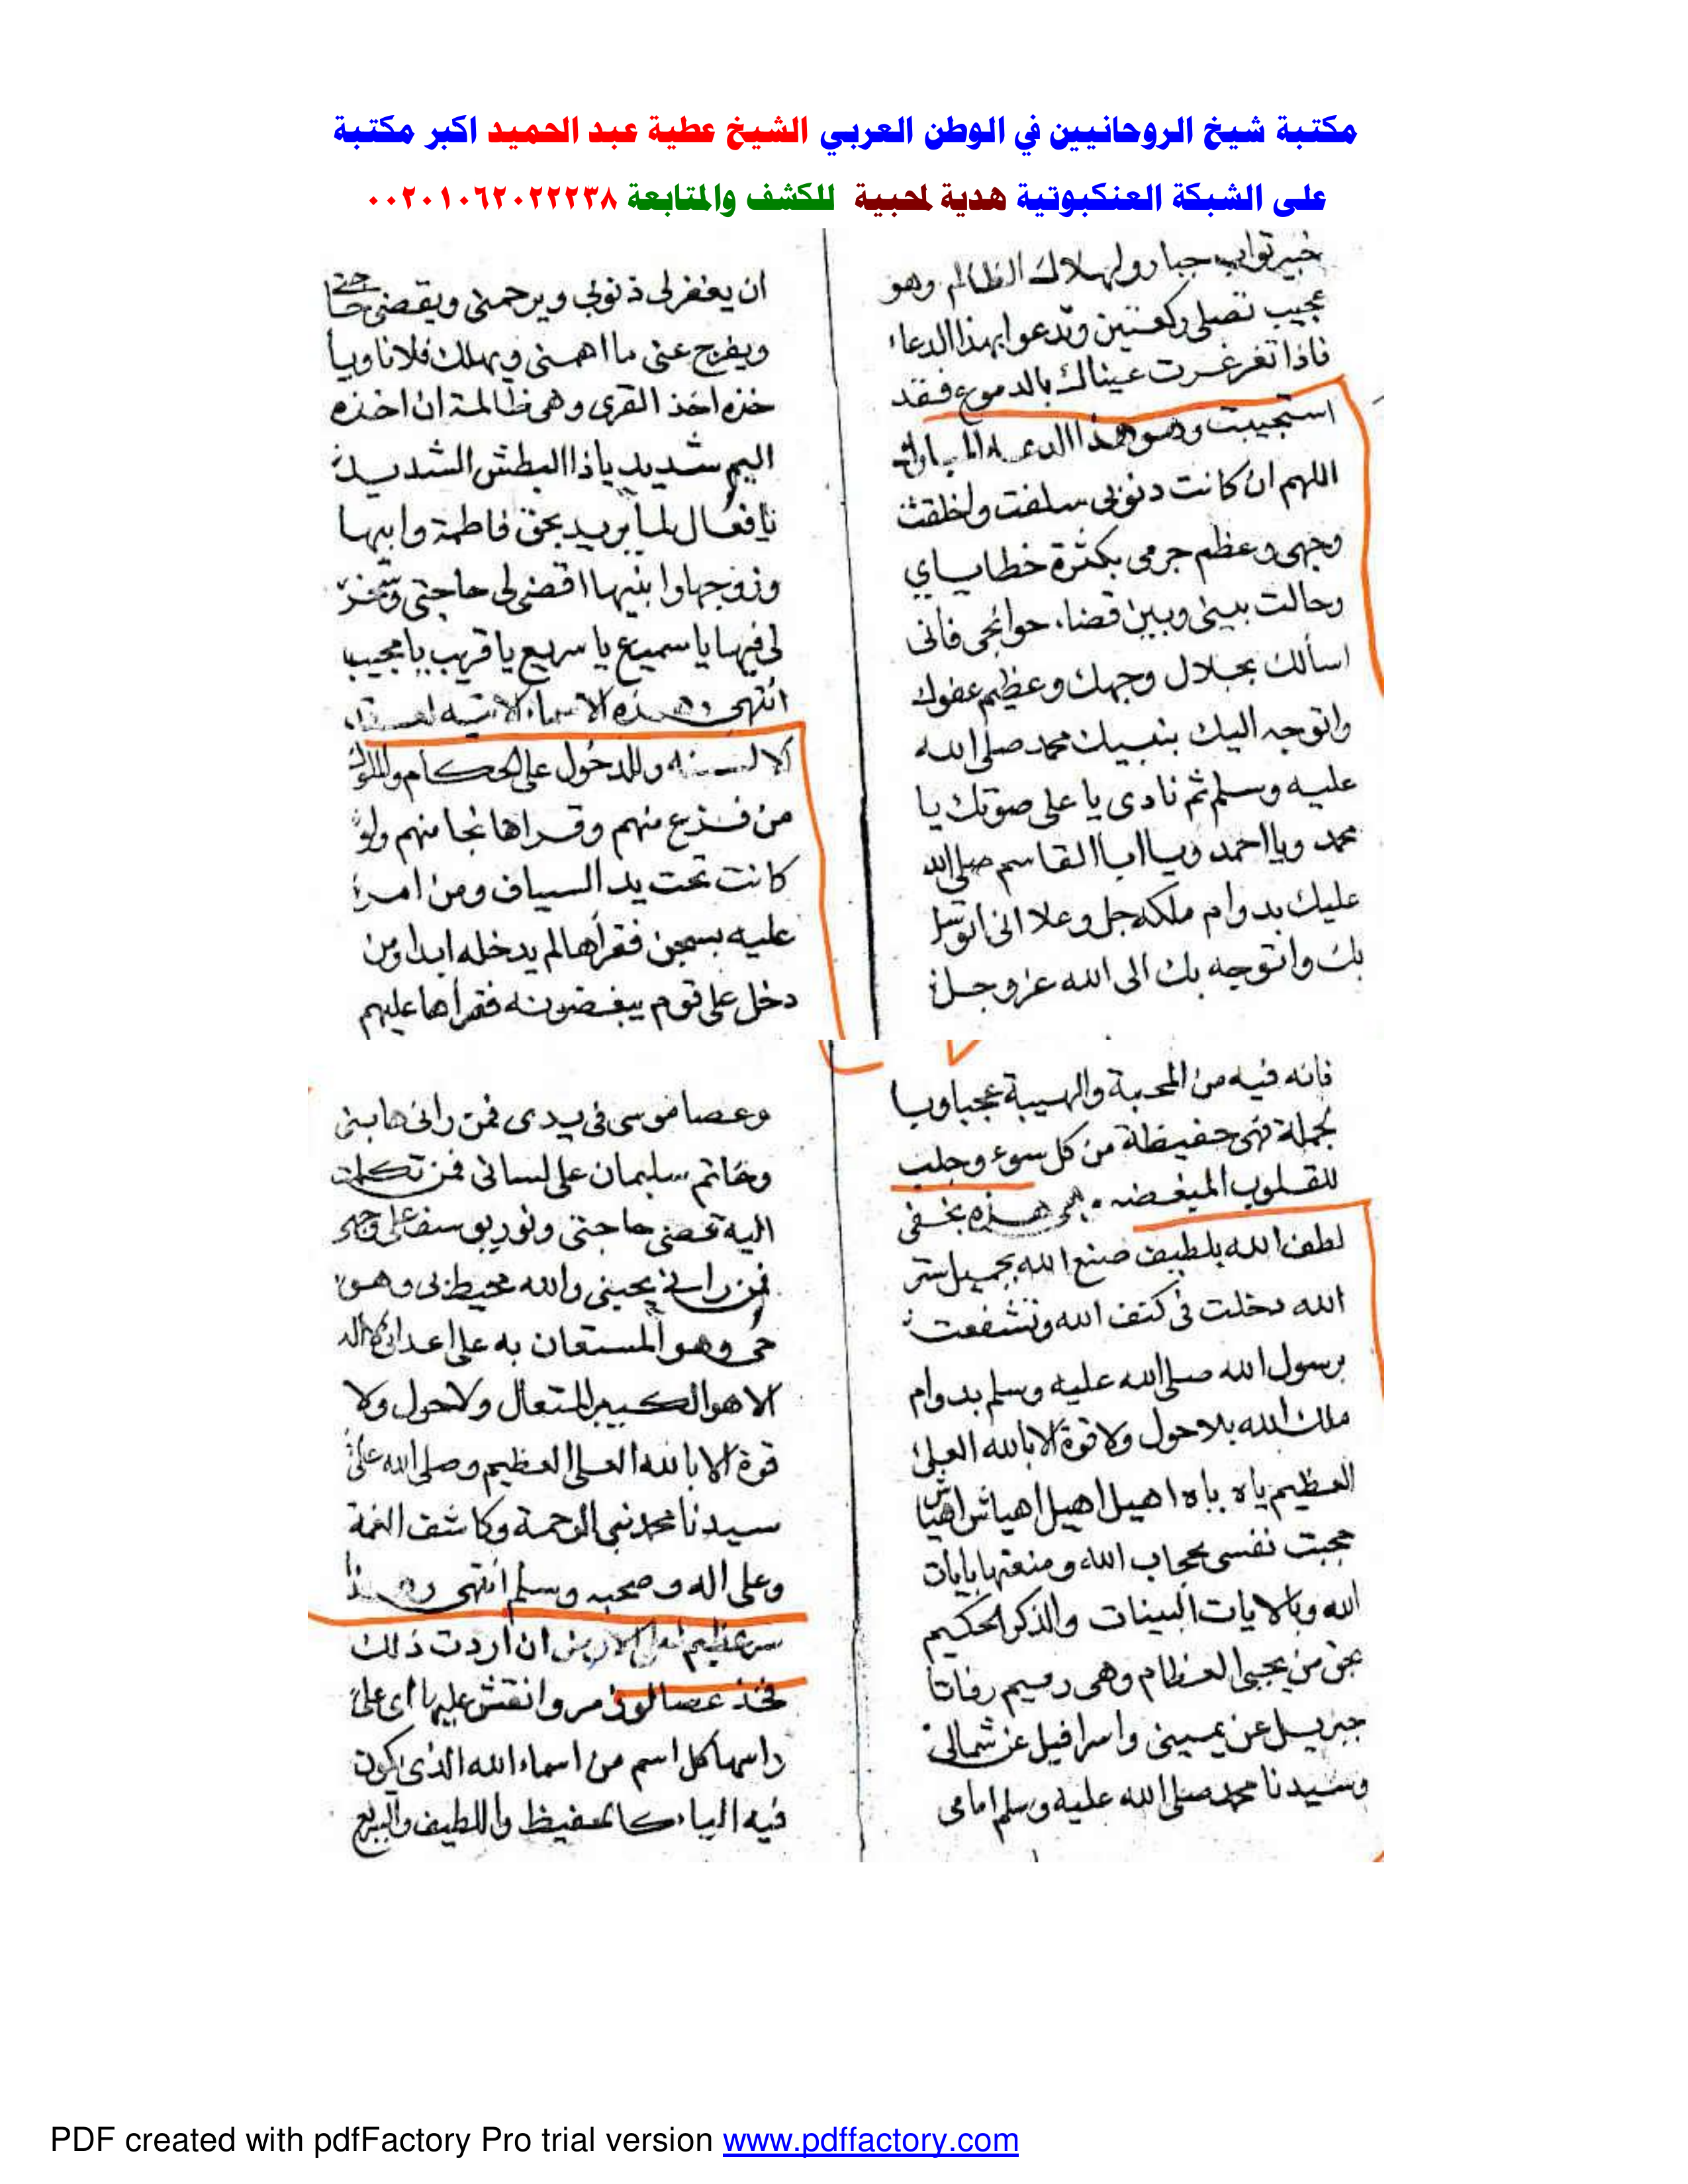 مكتبة شيخ الروحانيين في الوطن العربي الشيخ عطية عبد الحميد اكبر مكتبة
على الشبكة العنكبوتية هدية لمحبية للكشف والمتابعة ٠٠٢٠١٠٦٢٠٢٢٢٣٨
خبير تواب جبار ولهلاك الظالم وهو
عجيب تصلى ركعتين وتدعوا بهذا الدعاء
فاذا تغرغرت عيناك بالدموع فقد
استجيبت وهو هذا الدعاء المبارك
اللهم ان كانت دنوبى سلفت واخلقت
وجهى وعظم جرمى بكثرة خطاياي
وحالت بينى وبين قضاء حوائجى فانى
اسألك بجلال وجهك وعظيم عفوك
واتوجه اليك بنبيك محمد صلى الله
عليه وسلم ثم نادى يا على صوتك يا
محمد ويا احمد ويا ابا القاسم صلى الله
عليك بدوام ملكه جل وعلا انى اتوسل
بك واتوجه بك الى الله عز وجل
ان يغفر لى ذنوبى ويرحمنى ويقضى حاجتى
ويفرج عنى ما اهمنى ويهلك فلانا ويأ
خذه اخذ القرى وهى ظالمة ان اخذه
اليم شديد يا ذا البطش الشديد
يا فعال لما يريد بحق فاطمة وابيها
وزوجها وابنيها اقضى لى حاجتى وتسخر
لى فيها يا سميع يا سريع يا قريب يا مجيب
انتهى وهذه الاسماء الاتيه لعقد
الالسنه وللدخول على الحكام والملوك
من فزع منهم وقراها نجا منهم ولو
كانت تحت يد السياف ومن امر
عليه بسجن فقرأها لم يدخله ابدا ومن
دخل على قوم يبغضونه فقرأها عليهم
فانه فيه من المحبة والهيبة عجبا وبا
لجملة فهى حفيظة من كل سوء وجلب
للقلوب المبغضه وهى هذه بخفى
لطف الله بلطيف صنع الله بجميل ستر
الله دخلت فى كنف الله وتشفعت
برسول الله صلى الله عليه وسلم بدوام
ملك الله بلا حول ولا قوة الا بالله العلى
العظيم ياه ياه اهيل اهيل اهياش اهياش
حجبت نفسى بحجاب الله ومنعتها بايات
الله وبالايات البينات والذكر الحكيم
بحق من يحيى العظام وهى رميم رفاتا
جبريل عن يمينى واسرافيل عن شمالى
وسيدنا محمد صلى الله عليه وسلم امامى
وعصا موسى فى يدى فمن رانى هابنى
وخاتم سليمان على لسانى فمن تكلمت
اليه قضى حاجتى ونور يوسف على وجهى
فمن رانى يحبنى والله محيط بى وهو
حى وهو المستعان به على اعدائى لا اله
الا هو الكبير المتعال ولا حول ولا
قوة الا بالله العلى العظيم وصلى الله على
سيدنا محمد نبى الرحمة وكاشف الغمة
وعلى اله وصحبه وسلم انتهى وهذا
سر عظيم ان اردت ذلك
فخذ عصا لوز مر وانقش عليها اى على
راسها كل اسم من اسماء الله الذى يكون
فيه الياء كالحفيظ واللطيف والبديع
PDF created with pdfFactory Pro trial version www.pdffactory.com